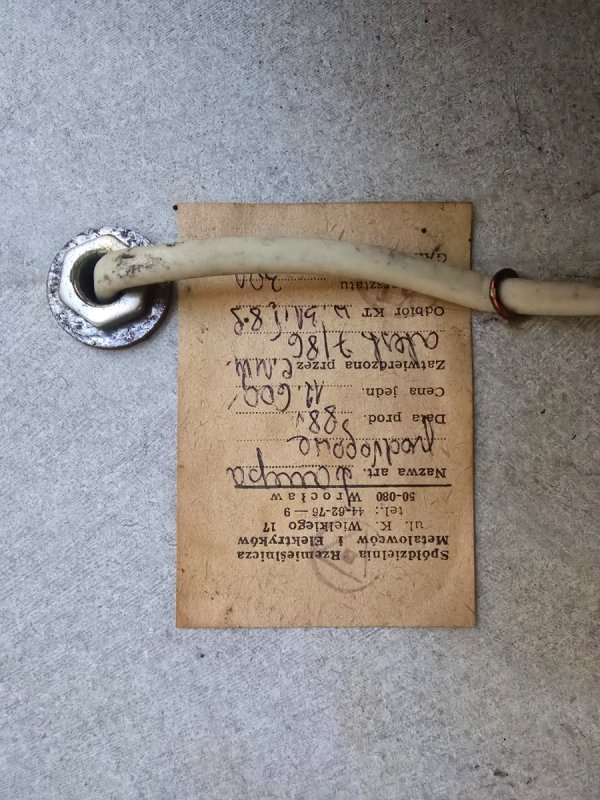 Spółdzielnia Rzemieślnicza
Metalowców i Elektryków
ul. K. Wielkiego 17
tel.: 44-62-76 — 9
50-080 Wrocław
Nazwa art. Lampa
podłogowa
Data prod. 88r
Cena jedn. 12.600
Zatwierdzona przez C.U.W.
7/86
Odbiór KT